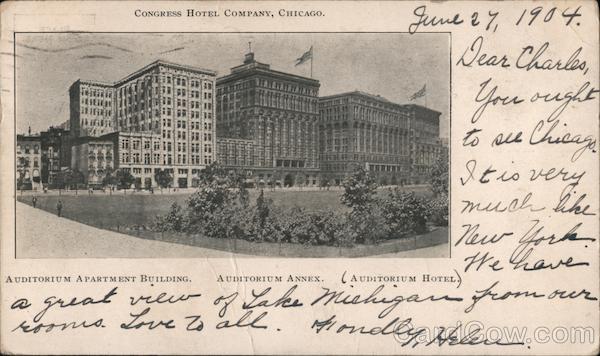 Congress Hotel Company, Chicago.
June 27, 1904.
Dear Charles,
You ought
to see Chicago.
It is very
much like
New York.
We have
Auditorium Apartment Building. Auditorium Annex. (Auditorium Hotel)
a great view of Lake Michigan from our
rooms. Love to all. Fondly,
Helen.
CardCow.com